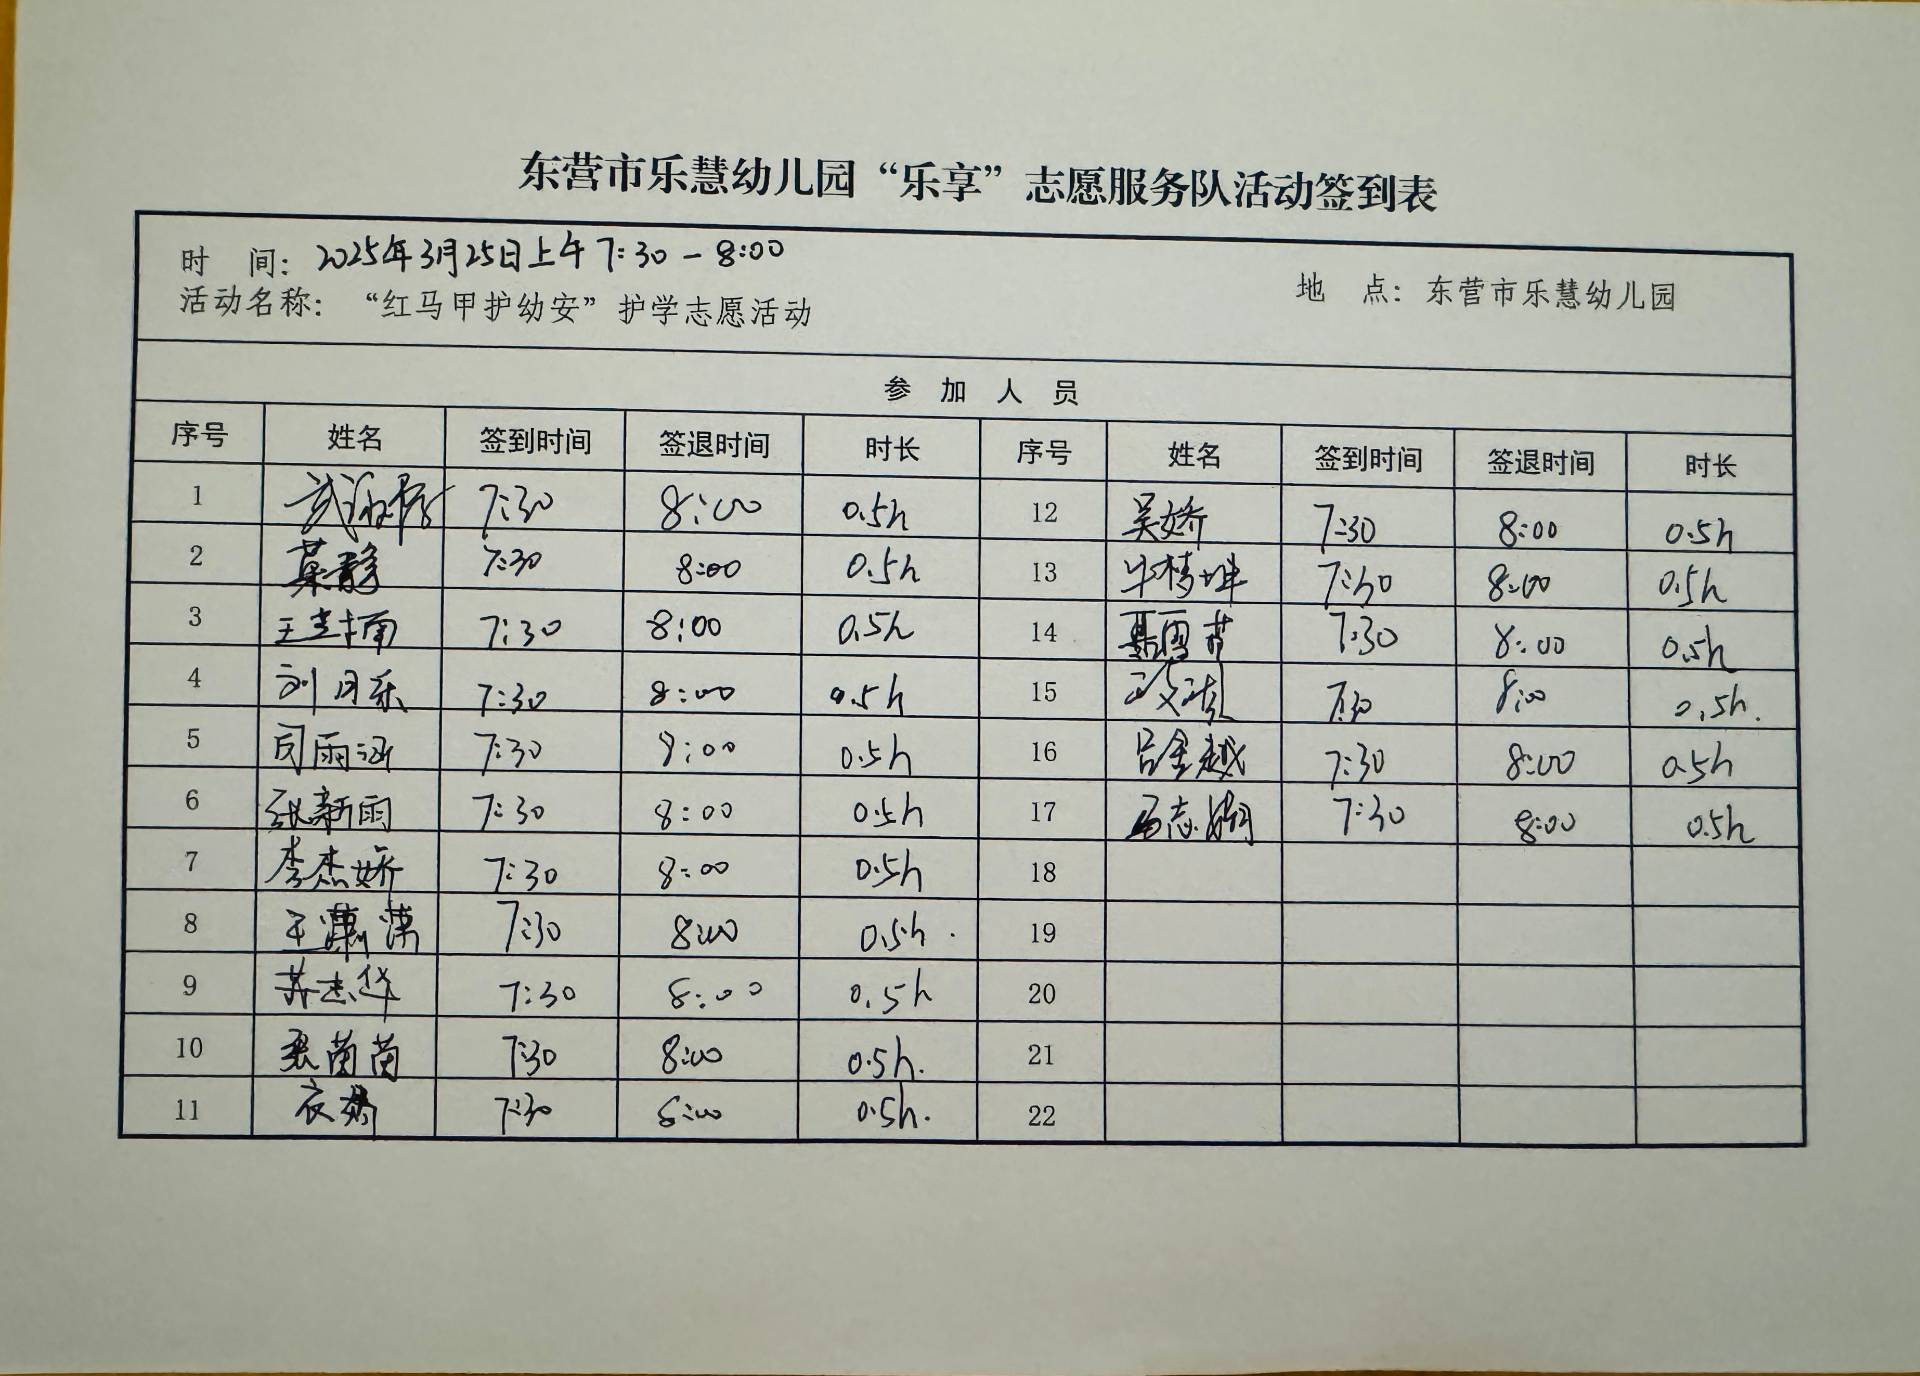 东营市乐慧幼儿园“乐享”志愿服务队活动签到表
时 间: 2025年3月25日上午7:30-8:00 地 点: 东营市乐慧幼儿园
活动名称: “红马甲护幼安”护学志愿活动
参 加 人 员
序号 姓名 签到时间 签退时间 时长 序号 姓名 签到时间 签退时间 时长
1 7:30 8:00 0.5h 12 吴娇 7:30 8:00 0.5h
2 7:30 8:00 0.5h 13 7:30 8:00 0.5h
3 7:30 8:00 0.5h 14 7:30 8:00 0.5h
4 刘月乐 7:30 8:00 0.5h 15 7:30 8:00 0.5h.
5 闫雨涵 7:30 8:00 0.5h 16 吕金越 7:30 8:00 0.5h
6 张新雨 7:30 8:00 0.5h 17 7:30 8:00 0.5h
7 李杰娇 7:30 8:00 0.5h 18
8 王潇潇 7:30 8:00 0.5h. 19
9 苏志华 7:30 8:00 0.5h 20
10 张茵茵 7:30 8:00 0.5h. 21
11 衣娇 7:30 8:00 0.5h. 22